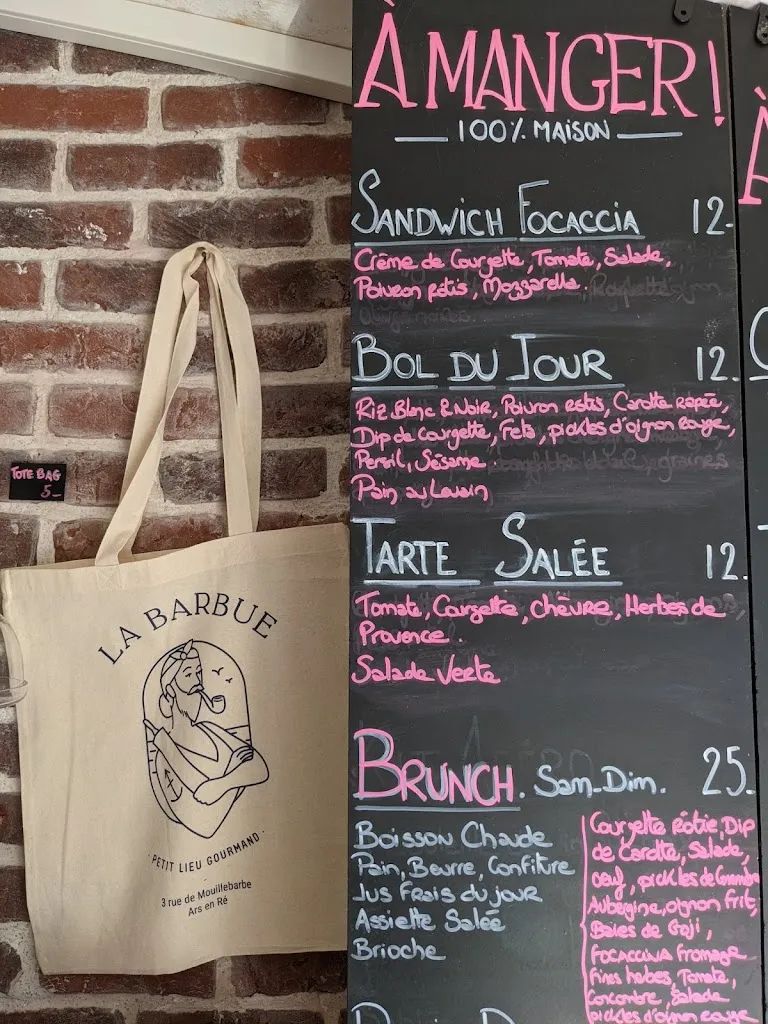 À MANGER !
100% MAISON
SANDWICH FOCACCIA 12.
Crème de Courgette, Tomate, Salade,
Poivron rotis, Mozzarella.
BOL DU JOUR 12.
Riz Blanc & Noir, Poivron rotis, Carotte rapée,
Dip de Courgette, Feta, pickles d'oignon rouge,
Persil, Sésame.
Pain au Levain
TARTE SALÉE 12.
Tomate, Courgette, chèvre, Herbes de
Provence.
Salade Verte
BRUNCH. Sam-Dim. 25.
Boisson Chaude
Pain, Beurre, Confiture
Jus Frais du jour
Assiette Salée
Brioche
Courgette Rôtie, Dip
de Carotte, Salade,
oeuf, pickles de
Aubergine, oignon Frit,
Baies de Goji,
FOCACCINA fromage
fines herbes, Tomate,
Concombre, Salade
pickles d'oignon rouge
TOTE BAG
5.-
LA BARBUE
• PETIT LIEU GOURMAND •
3 rue de Mouillebarbe
Ars en Ré